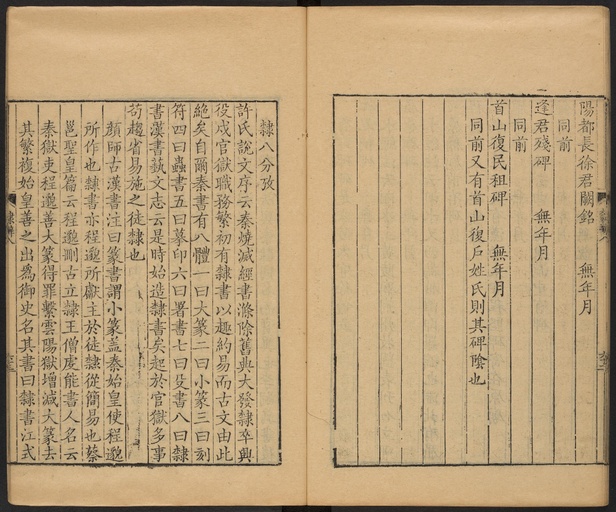 陽都長徐君闕銘 無年月
同前
逢君殘碑 無年月
同前
首山復民租碑 無年月
同前又有首山復戶姓氏則其碑陰也
隸八分攷
許氏說文序云秦燒滅經書滌除舊典大發隸卒興
役戍官獄職務繁初有隸書以趣約易而古文由此
絕矣自爾秦書有八體一曰大篆二曰小篆三曰刻
符四曰蟲書五曰摹印六曰署書七曰殳書八曰隸
書漢書藝文志云是時始造隸書矣起於官獄多事
苟趨省易施之徒隸也
顏師古漢書注曰篆書謂小篆蓋秦始皇使程邈
所作也隸書亦程邈所獻主於徒隸從簡易也蔡
邕聖皇篇云程邈刪古立隸王僧虔能書人名云
秦獄吏程邈善大篆得罪繫雲陽獄增減大篆去
其繁複始皇善之出為御史名其書曰隸書江式